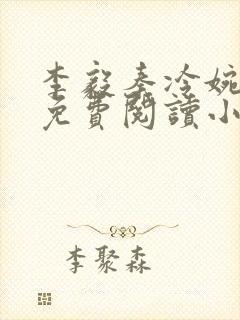 李毅秦冷婉
免費閱讀小
李聚森